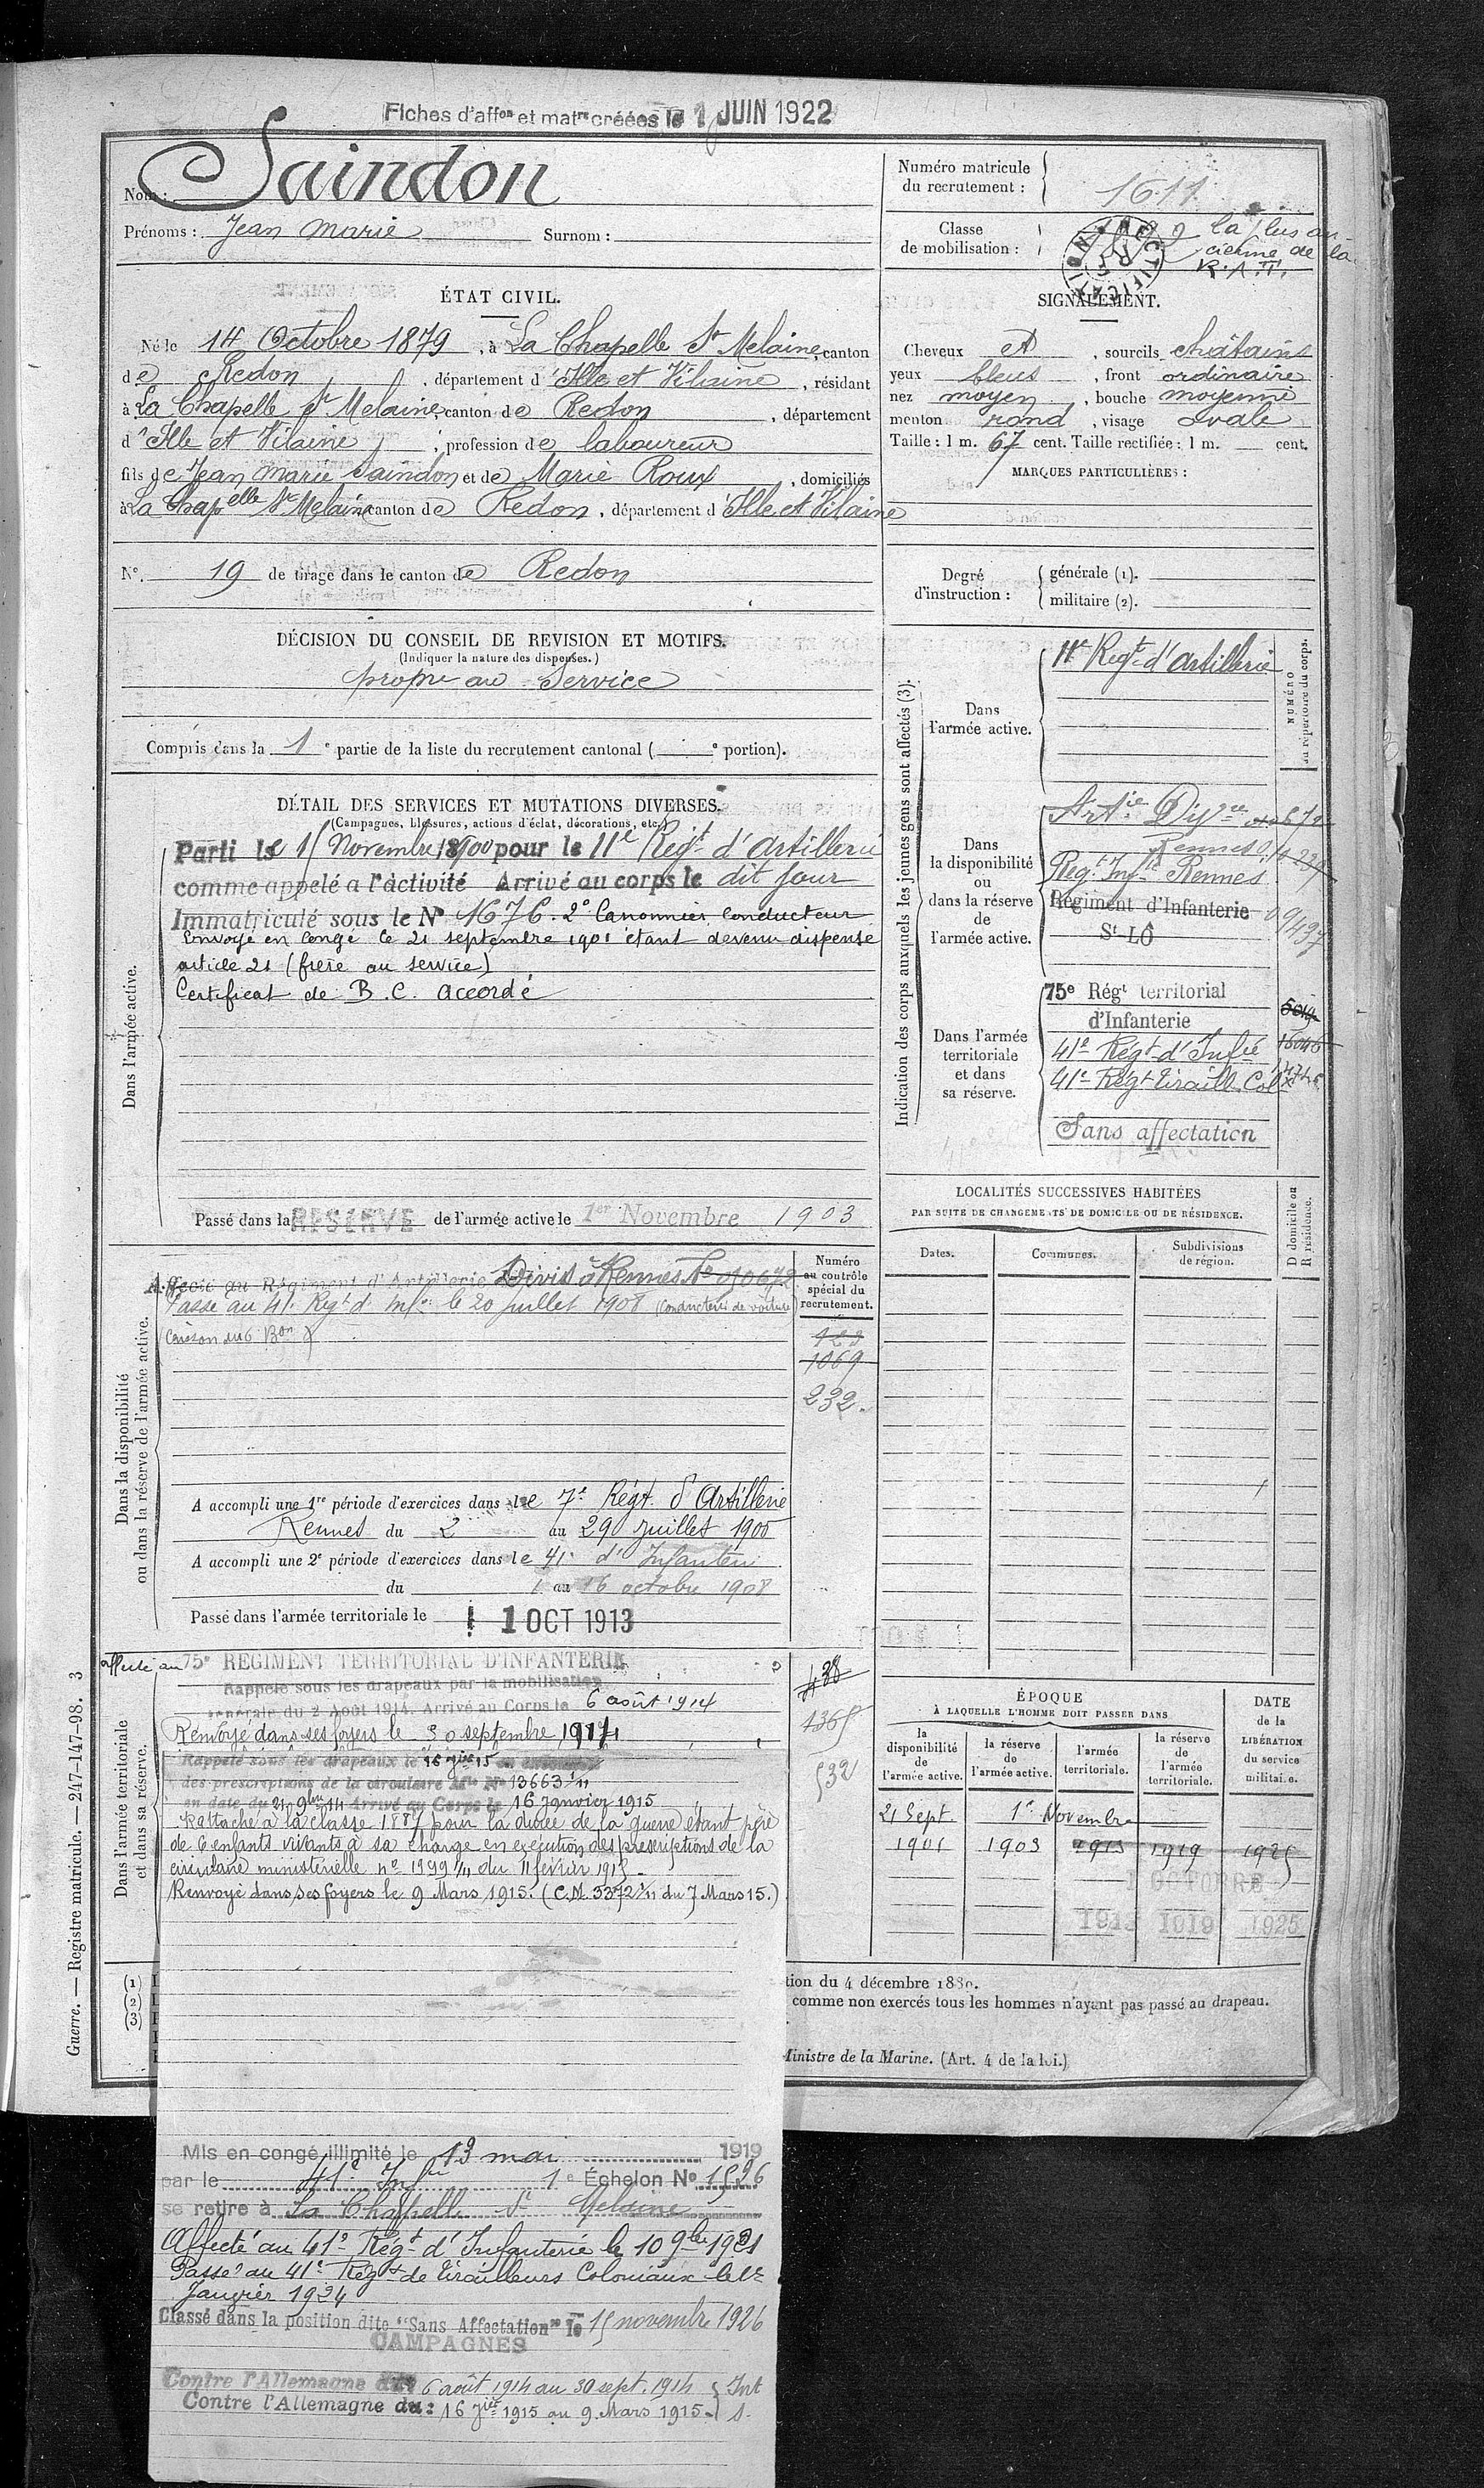 Fiches d'affon et matre créées le 1 JUIN 1922
Nom : Saindon
Prénoms : Jean Marie Surnom :
Numéro matricule du recrutement : 1611
Classe de mobilisation : la plus an-
cienne de la
R.A.T.
RECTIFICATION
ÉTAT CIVIL.
Né le 14 Octobre 1879, à La Chapelle St Melaine, canton
de Redon, département d'Ille et Vilaine, résidant
à La Chapelle St Melaine, canton de Redon, département
d'Ille et Vilaine, profession de laboureur
fils de Jean Marie Saindon et de Marie Roux, domiciliés
à La Chapelle St Melaine canton de Redon, département d'Ille et Vilaine
N°. 19 de tirage dans le canton de Redon
SIGNALEMENT.
Cheveux et, sourcils châtains
yeux bleus, front ordinaire
nez moyen, bouche moyenne
menton rond, visage ovale
Taille : 1 m. 67 cent. Taille rectifiée : 1 m. cent.
MARQUES PARTICULIÈRES :
Degré d'instruction : générale (1).
militaire (2).
DÉCISION DU CONSEIL DE REVISION ET MOTIFS.
(Indiquer la nature des dispenses.)
propre au Service
Compris dans la 1e partie de la liste du recrutement cantonal ( e portion).
DÉTAIL DES SERVICES ET MUTATIONS DIVERSES.
(Campagnes, blessures, actions d'éclat, décorations, etc.)
Dans l'armée active.
Parti le 15 Novembre 1900 pour le 11e Régt d'Artillerie
comme appelé à l'activité Arrivé au corps le dit jour
Immatriculé sous le N° 1676. 2e Canonnier Conducteur
Envoyé en congé le 21 septembre 1901 étant devenu dispensé
article 21 (frère au service)
Certificat de B.C. accordé
Passé dans la RÉSERVE de l'armée active le 1er Novembre 1903
Indication des corps auxquels les jeunes gens sont affectés (3).
NUMÉRO au répertoire du corps.
Dans l'armée active.
11e Régt d'Artillerie
Dans la disponibilité ou dans la réserve de l'armée active.
Artie Divre
Rennes
Régt Infie Rennes
Régiment d'Infanterie
St LÔ
Dans l'armée territoriale et dans sa réserve.
75e Régt territorial
d'Infanterie
41e Régt d'Infie
41e Régt Tiraill. Colx
Sans affectation
LOCALITÉS SUCCESSIVES HABITÉES
PAR SUITE DE CHANGEMENTS DE DOMICILE OU DE RÉSIDENCE.
D domicile ou R résidence.
Dates. Communes. Subdivisions de région.
Dans la disponibilité ou dans la réserve de l'armée active.
Numéro au contrôle spécial du recrutement.
Affecté au Régiment d'Artillerie Divis à Rennes No 010672
Passé au 41e Régt d'Infie le 20 juillet 1908 (Conducteur de voiture
Caisson du 6 Bon)
1069
232.
A accompli une 1re période d'exercices dans le 7e Régt d'Artillerie
Rennes du 2 au 29 juillet 1905
A accompli une 2e période d'exercices dans le 41e d'Infanterie
du 1 au 16 octobre 1908
Passé dans l'armée territoriale le 1 OCT 1913
Dans l'armée territoriale et dans sa réserve.
affecté au 75e RÉGIMENT TERRITORIAL D'INFANTERIE
Rappelé sous les drapeaux par la mobilisation
générale du 2 Août 1914. Arrivé au Corps le 6 août 1914
Renvoyé dans ses foyers le 30 septembre 1914
Rappelé sous les drapeaux le 16 jier 15 en exécution
des prescriptions de la circulaire Mlle N° 13663 1/11
en date du 21 9bre 14 Arrivé au Corps le 16 Janvier 1915
Rattaché à la classe 1887 pour la durée de la guerre étant père
de 6 enfants vivants à sa charge en exécution des prescriptions de la
circulaire ministérielle n° 1999 1/11 du 11 février 1915.
Renvoyé dans ses foyers le 9 Mars 1915. (C.M. 3372 1/11 du 7 Mars 15.)
1365
532
ÉPOQUE
À LAQUELLE L'HOMME DOIT PASSER DANS
la disponibilité de l'armée active. la réserve de l'armée active. l'armée territoriale. la réserve de l'armée territoriale.
DATE de la LIBÉRATION du service militaire.
21 Sept. 1er Novembre
1901 1903 1913 1919 1925
1 OCTOBRE
1913 1919 1925
Guerre. — Registre matricule. — 247-147-98. 3
(1)
(2)
(3)
tion du 4 décembre 1889.
comme non exercés tous les hommes n'ayant pas passé au drapeau.
Ministre de la Marine. (Art. 4 de la loi.)
Mis en congé illimité le 13 mai 1919
par le 41e Infie 1e Échelon N° 1596
se retire à La Chapelle St Melaine
Affecté au 41e Régt d'Infanterie le 10 9bre 1921
Passé au 41e Régt de Tirailleurs Coloniaux le 1er
Janvier 1924
Classé dans la position dite "Sans Affectation" le 15 novembre 1926
CAMPAGNES
Contre l'Allemagne du 6 août 1914 au 30 sept. 1914 } Int
Contre l'Allemagne du : 16 jier 1915 au 9 Mars 1915. } S.